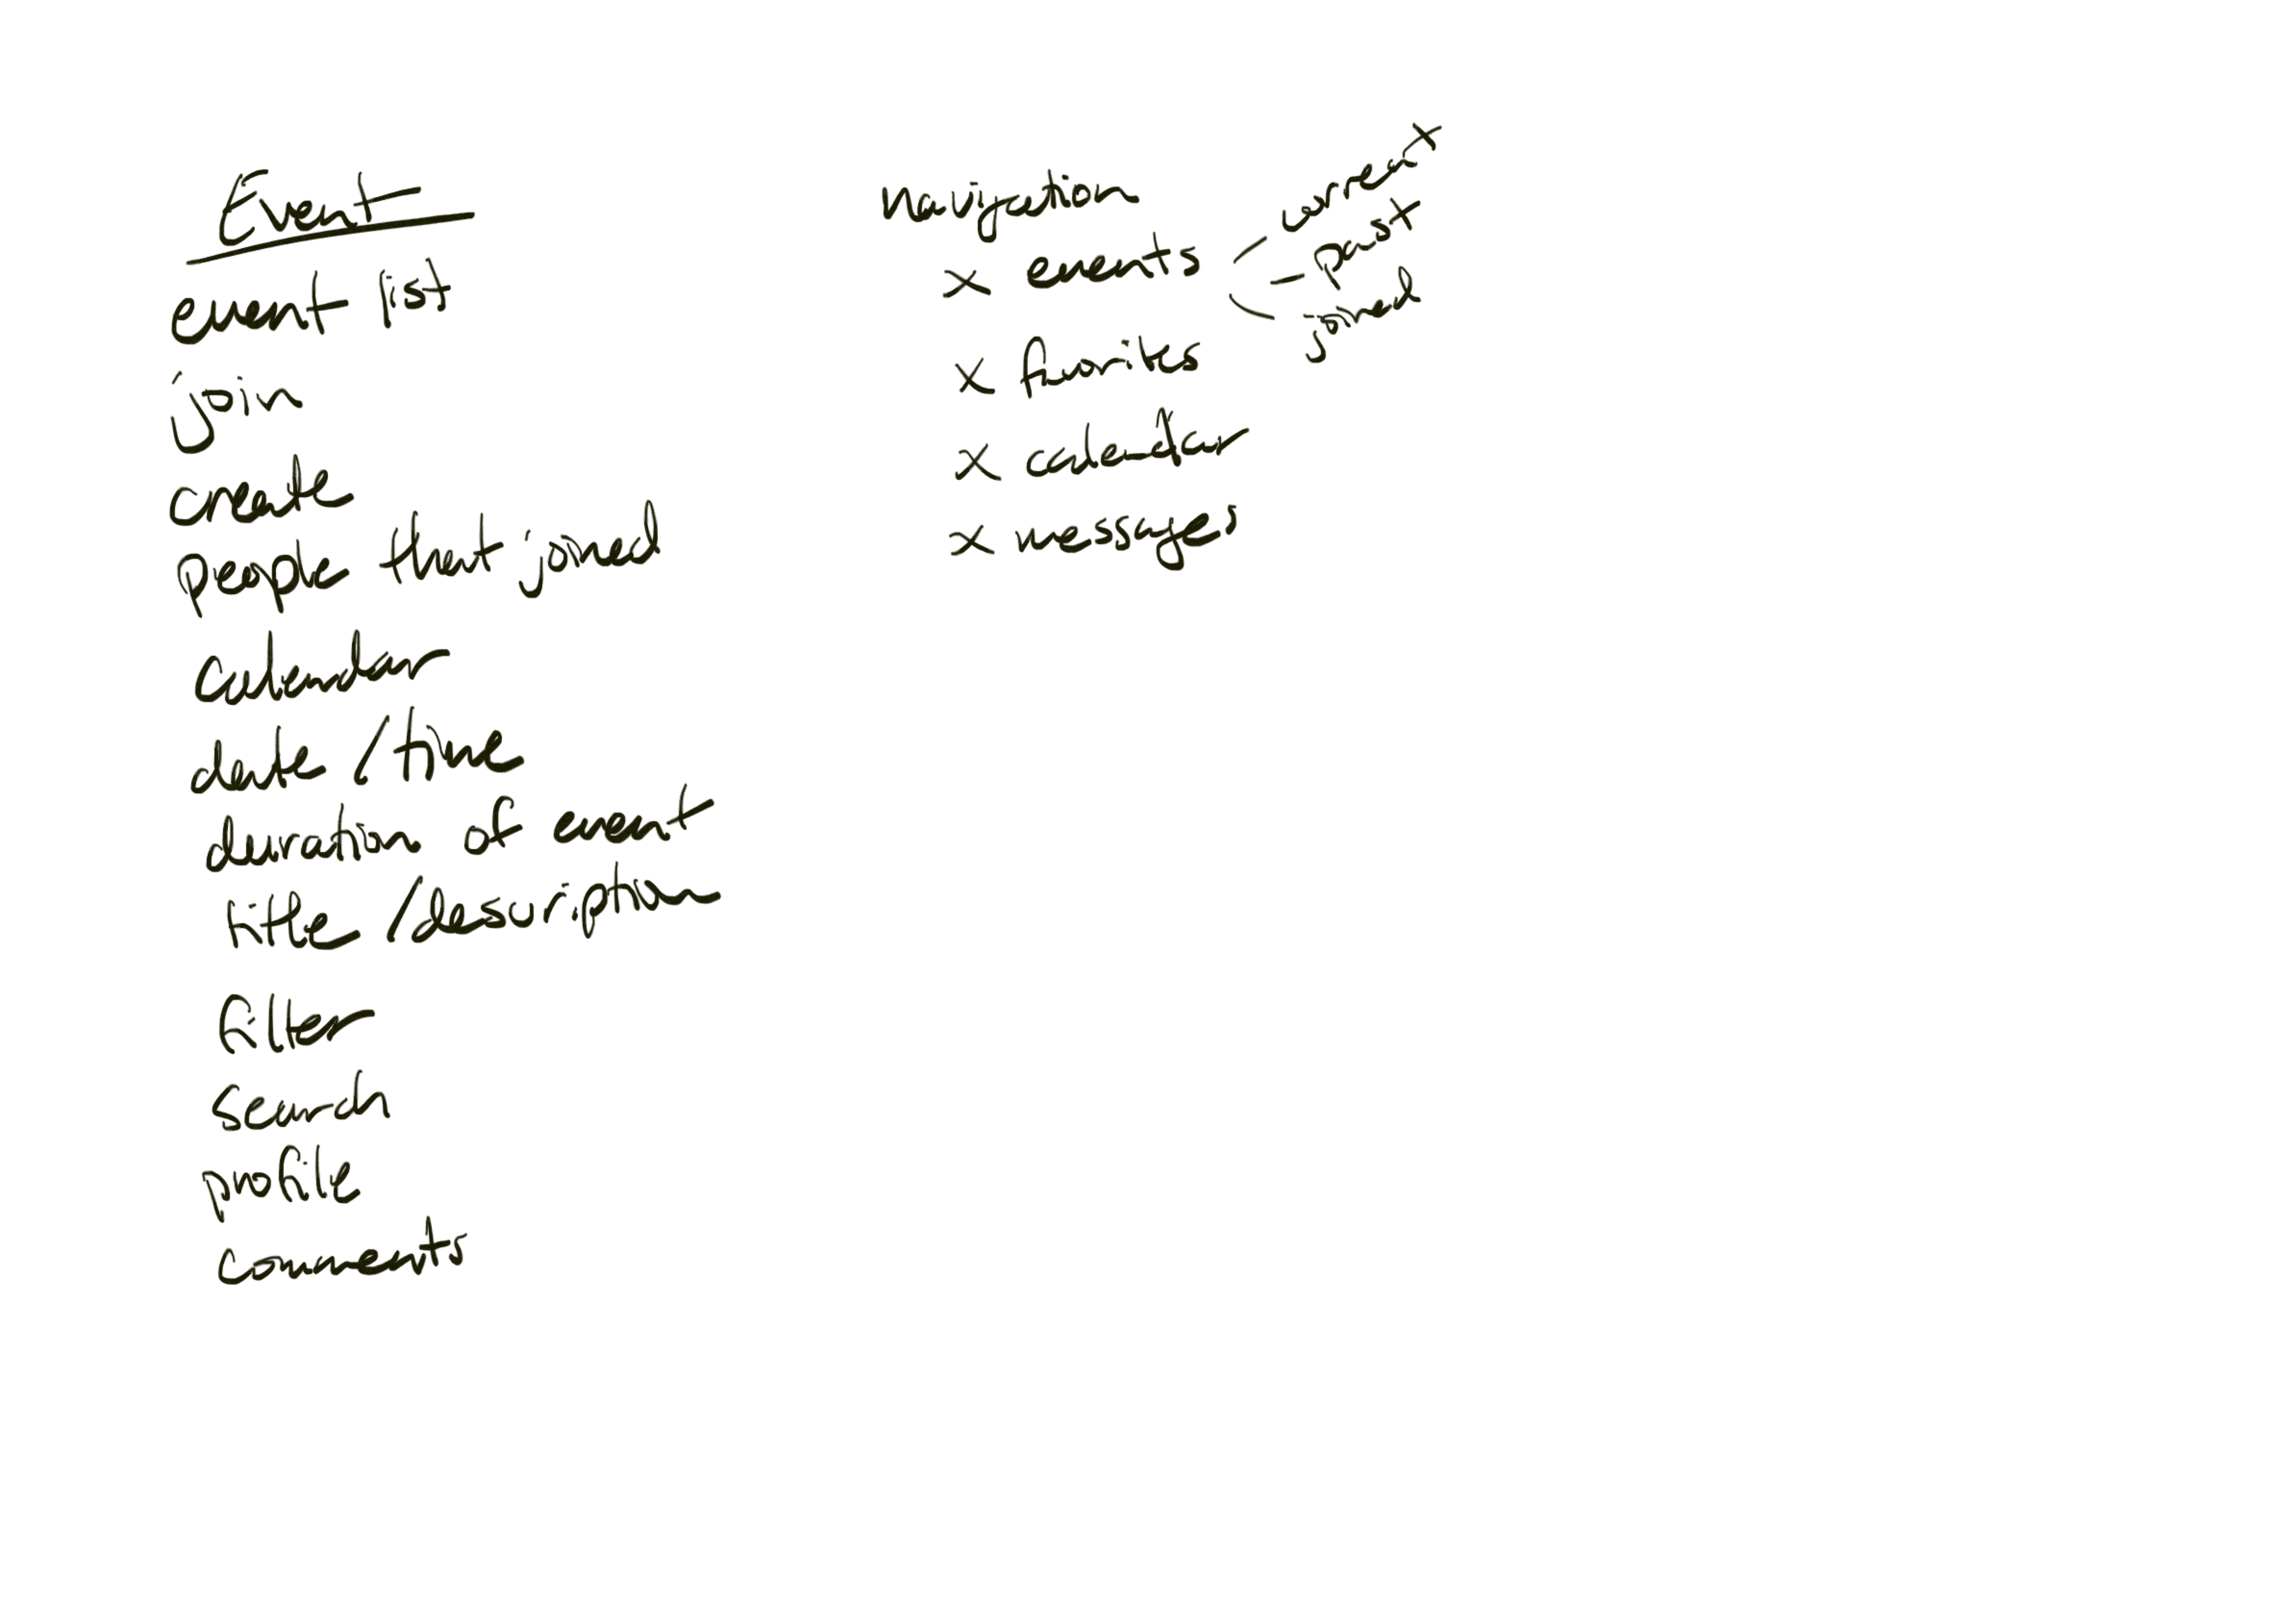 Event
event list
join
create
people that joined
calendar
date / time
duration of event
title / description
filter
search
profile
comments
navigation
x events
current
past
joined
x favorites
x calendar
x messages